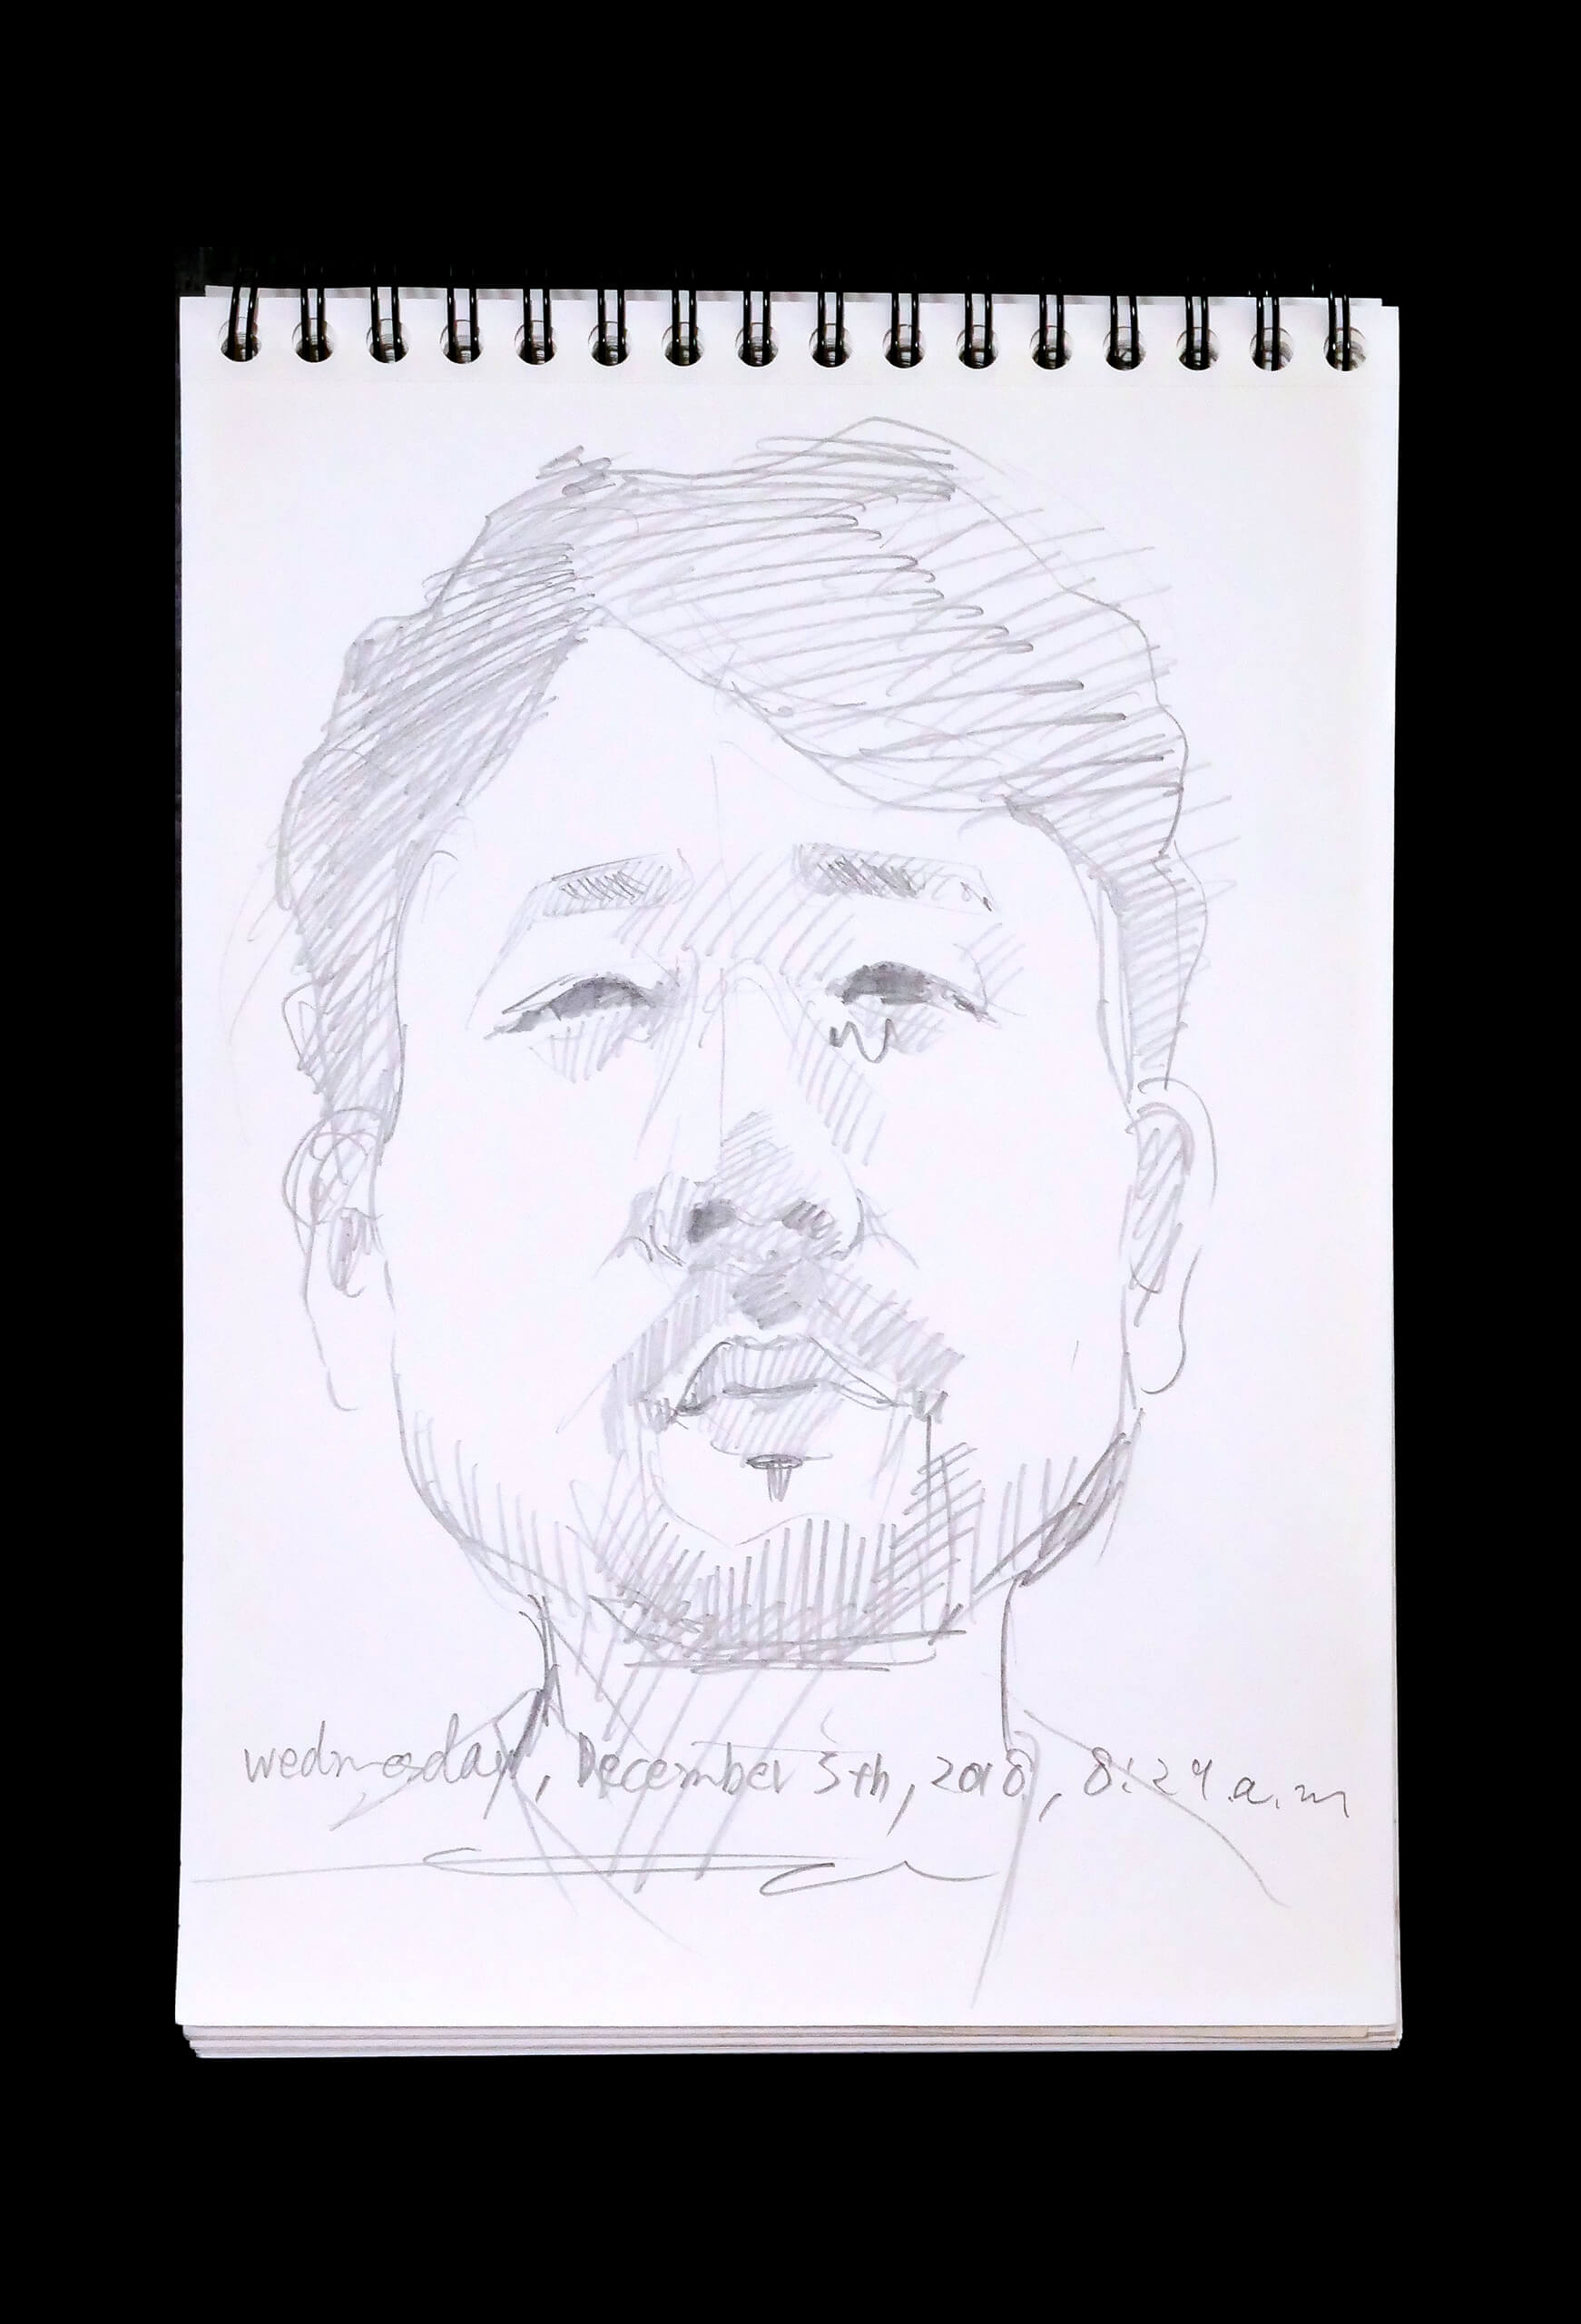 wednesday, December 5th, 2018, 8:29 a.m